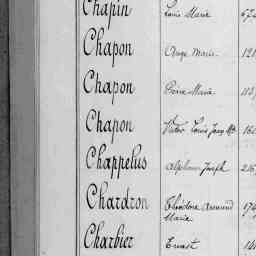 Chapin Louis Marie 574
Chapon Ange Marie 121
Chapon Pierre Marie 113
Chapon Victor Louis
Chappelus Alphonse Joseph 216
Chardron Théodore Armand
Marie
Charbier Ernest